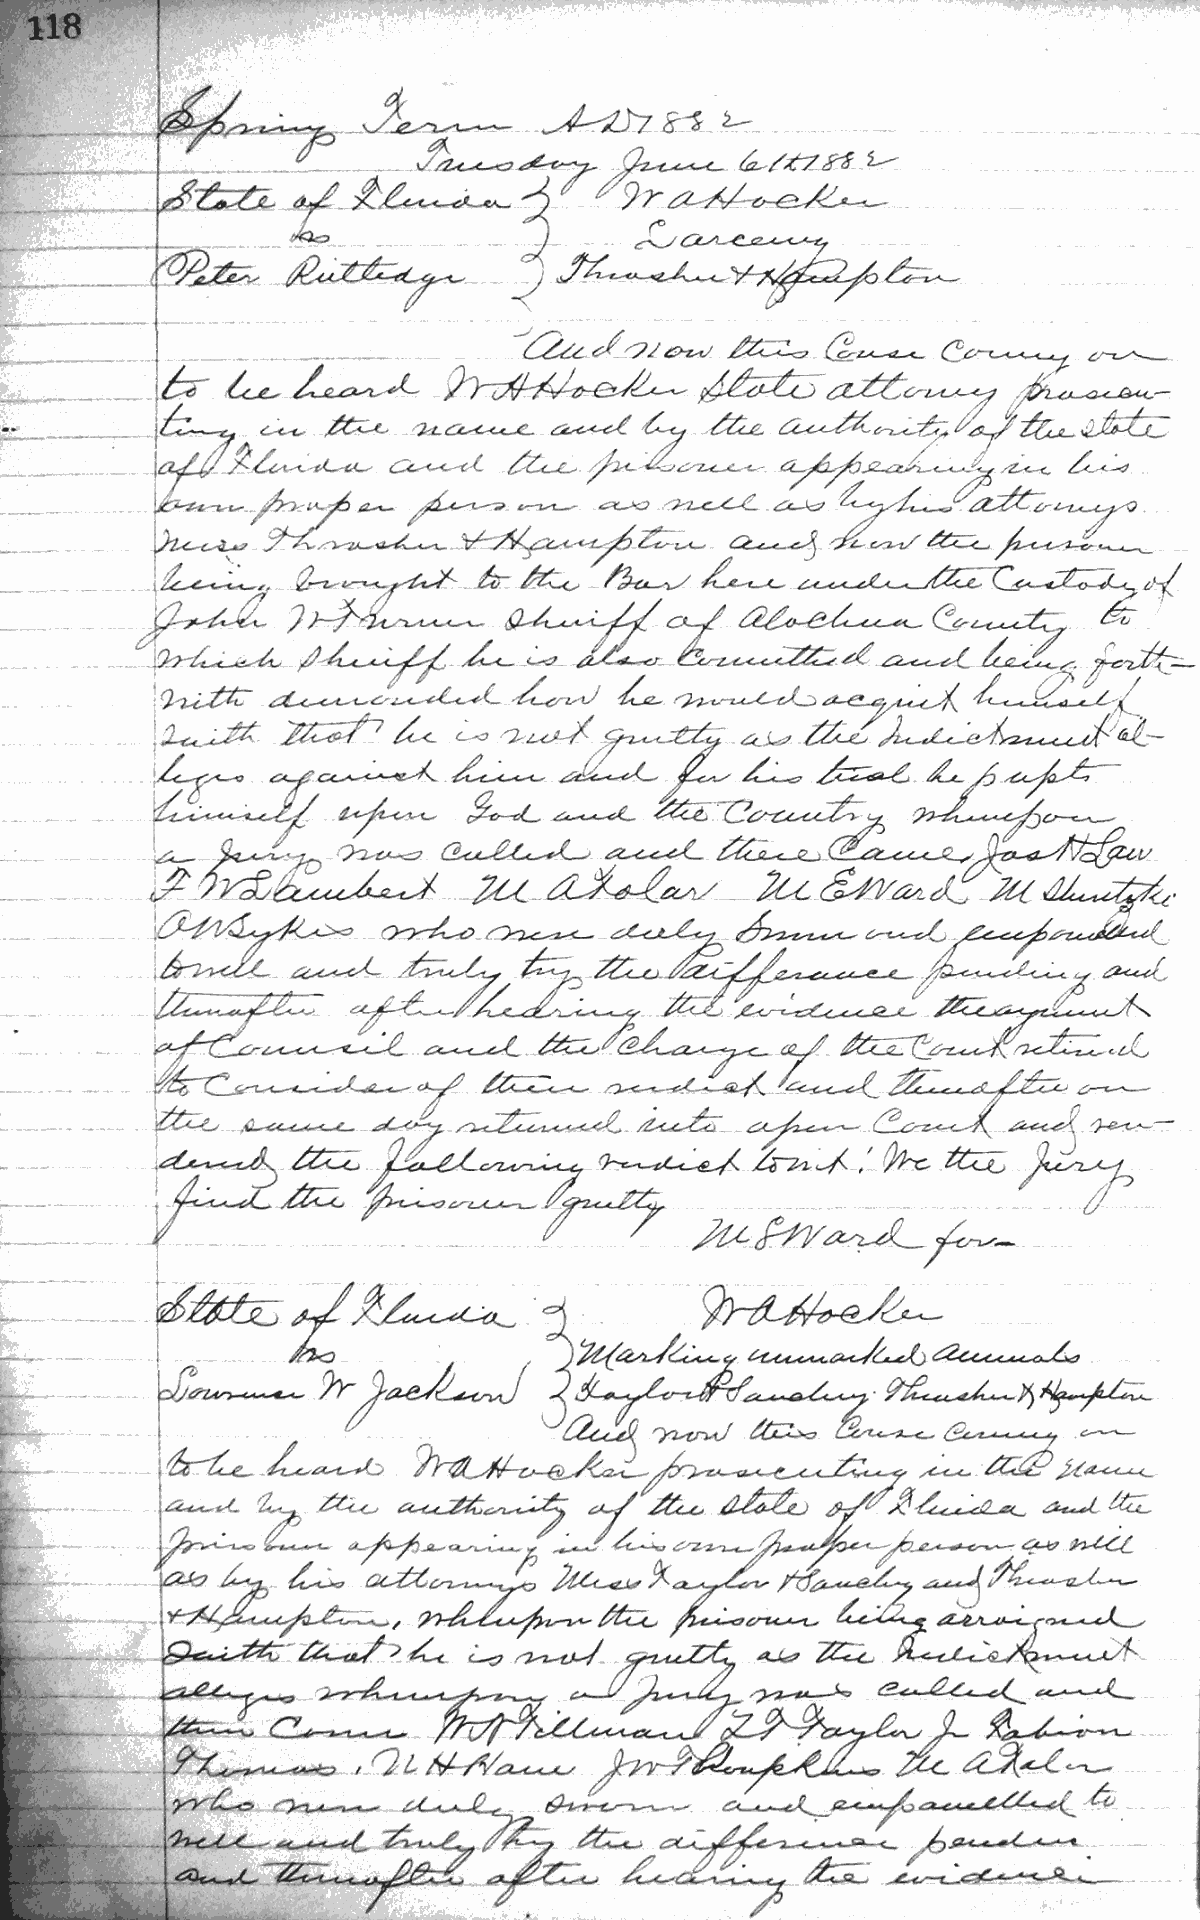 118
Spring Term AD 1882
Tuesday June 6th 1882
State of Florida } W A Hocker
vs } Larceny
Peter Rutledge } Thrasher & Hampton
And now this Cause Coming on
to be heard W A Hocker State attorney prosecu-
ting in the name and by the authority of the State
of Florida and the prisoner appearing in his
own proper person as well as by his attorneys
Mess Thrasher & Hampton and now the prisoner
being brought to the Bar here under the Custody of
John W Turner Sheriff of Alachua County to
which Sheriff he is also Committed and being forth-
with demanded how he would acquit himself
saith that he is not guilty as the Indictment al-
leges against him and for his trial he puts
himself upon God and the Country whereupon
a Jury was called and there Came Jas H Law
F W Lambert M A Tolar M E Ward M
O W Sykes who were duly Sworn and empanelled
to well and truly try the difference pending and
thereafter after hearing the evidence the argument
of Counsel and the Charge of the Court retired
to Consider of their verdict and thereafter on
the same day returned into open Court and ren-
dered the following verdict towit: We the Jury
find the prisoner guilty
M E Ward for-
State of Florida } W A Hocker
vs } Marking unmarked animals
Lawrence W Jackson } Taylor & Sanchez Thrasher & Hampton
And now this Cause Coming on
to be heard W A Hocker prosecuting in the name
and by the authority of the State of Florida and the
prisoner appearing in his own proper person as well
as by his attorneys Mess Taylor & Sanchez and Thrasher
& Hampton, whereupon the prisoner being arraigned
Saith that he is not guilty as the Indictment
alleges whereupon a Jury was called and
there Came W Tillman L T Taylor Jr Fabion
Thomas, N H Kane J W Thompkins M A Tolar
who were duly sworn and empanelled to
well and truly try the difference pendin
and thereafter after hearing the evidence